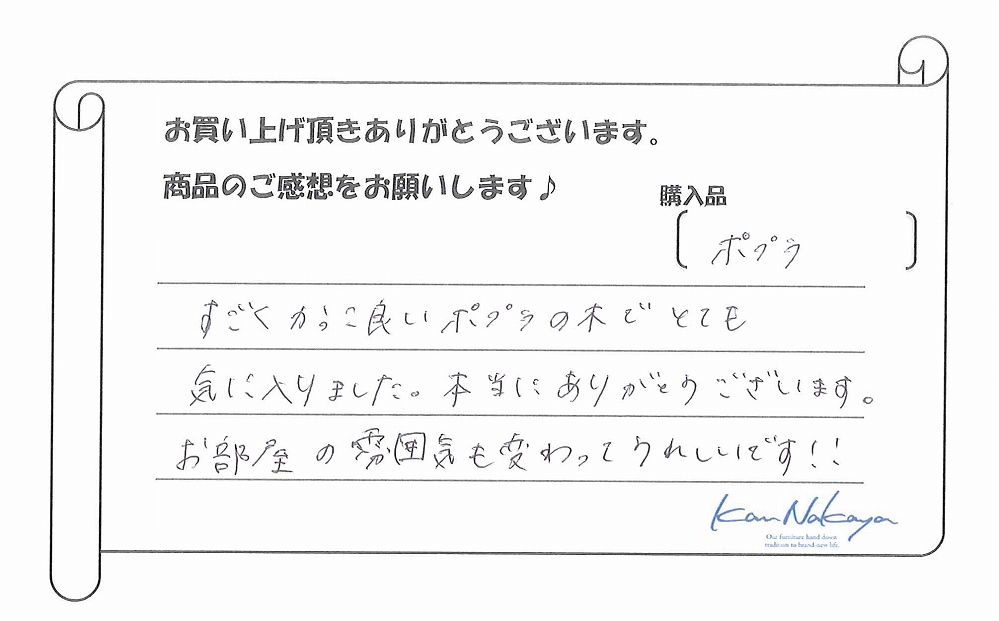 お買い上げ頂きありがとうございます。
商品のご感想をお願いします♪
購入品
ポプラ
すごくかっこ良いポプラの木でとても
気に入りました。本当にありがとうございます。
お部屋の雰囲気も変わってうれしいです!!
Kan Nakaya
Our furniture hand down
tradition to brand-new life.